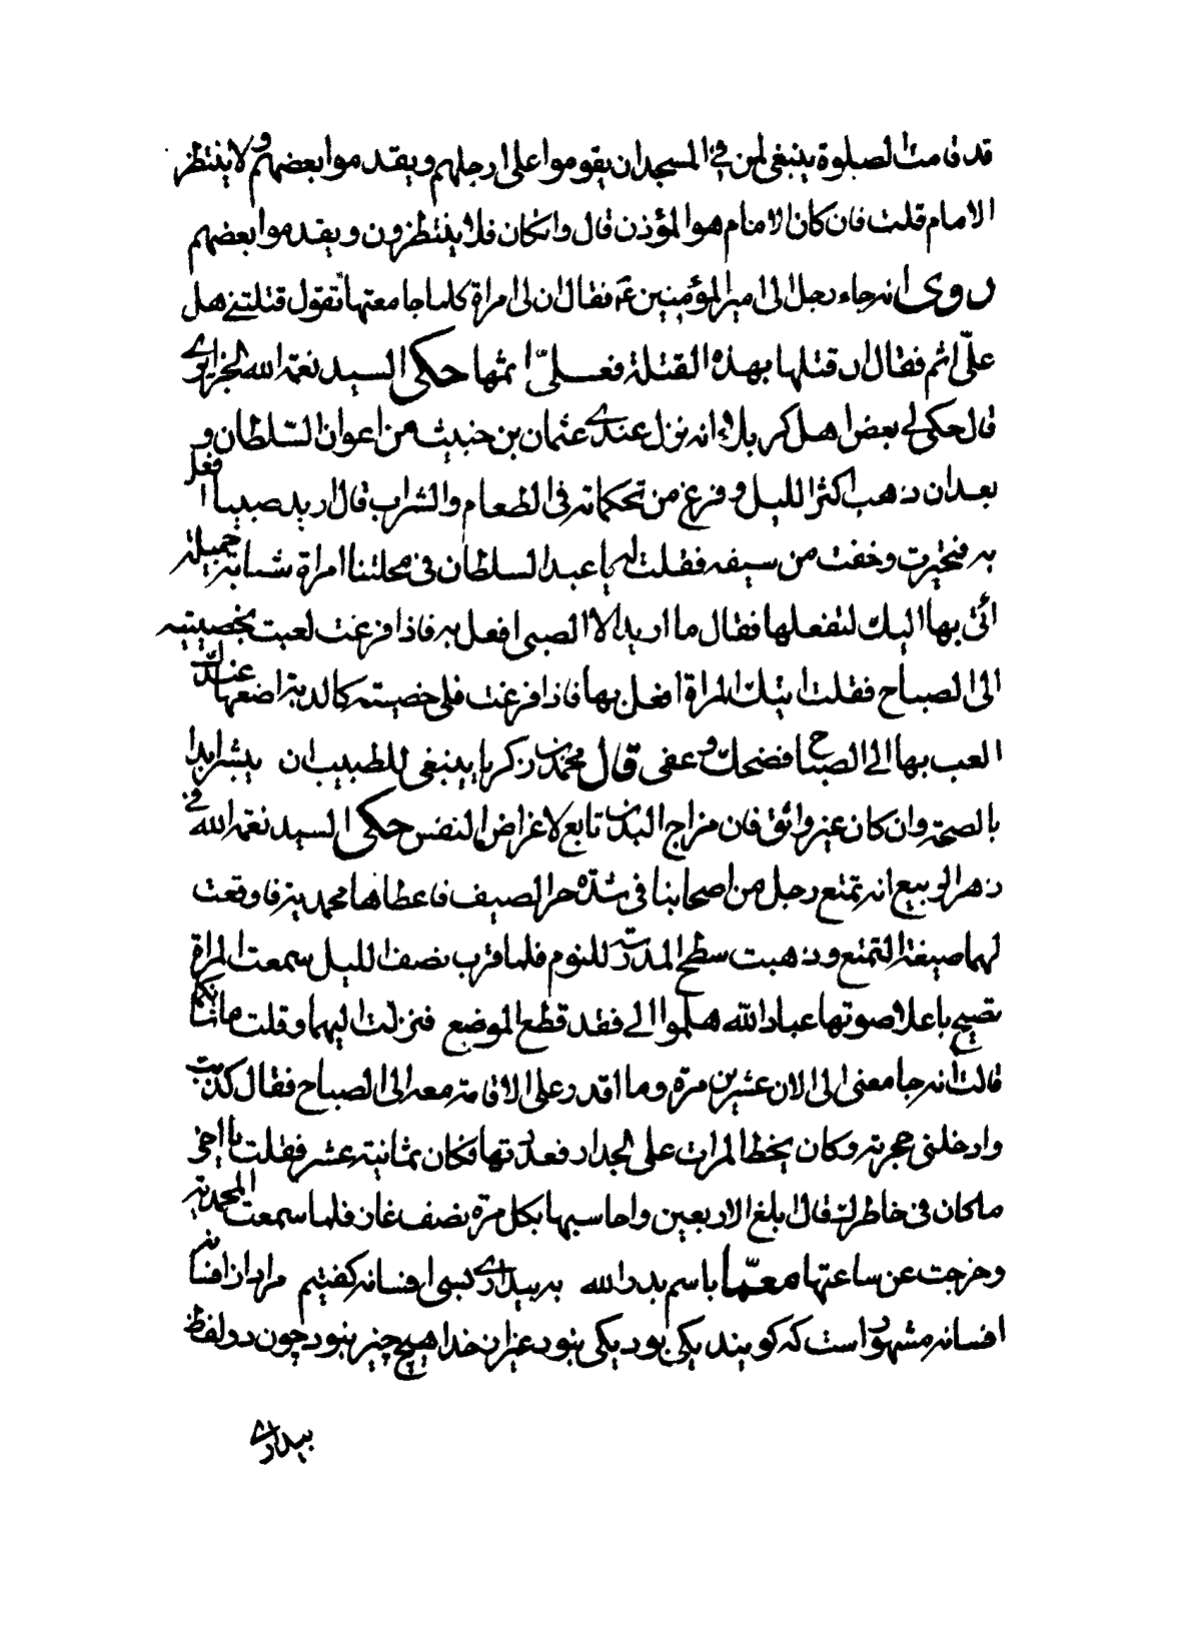 قد قامت الصلوة ينبغي لمن في المسجد ان يقوموا على ارجلهم ويقدموا بعضهم ولا ينتظر
الامام قلت فان كان الامام هو المؤذن قال وان كان فلا ينتظرون ويقدموا بعضهم
روى انه جاء رجل الى امير المؤمنين ع فقال ان لى امراة كلما جامعتها تقول قتلتنى هل
علىّ اثم فقال اقتلها بهذه القتلة فعلىّ اثمها حكى السيد نعمة الله الجزايرى
قال حكى لى بعض اهل كربلاء انه نزل عندى عثمان بن من اعوان السلطان و
بعد ان ذهب اكثر الليل وفرغ من تحكماته فى الطعام والشراب قال اريد صبيا افعل
به فتحيرت وخفت من سيفه فقلت له يا عبد السلطان فى محلتنا امراة شابة جميلة
اتى بها اليك لتفعلها فقال ما اريد الا الصبى افعل به فاذا فرغت لعبت بخصيتيه
الى الصباح فقلت ايتك المراة افعل بها فاذا فرغت فلى خصيته اضعها عندك
العب بها الى الصباح فضحك وعفى قال محمد بن زكريا ينبغى للطبيب ان يبشر ابدا
بالصحة وان كان غير واثق فان مزاج البدن تابع لاغراض النفس حكى السيد نعمة الله فى
زهر الربيع انه تمتع رجل من اصحابنا فى شدة حر الصيف فاعطاها محمدية فاوقعت
لهما صيغة التمتع وذهبت سطح المدرسة للنوم فلما قرب نصف الليل سمعت المراة
تصيح باعلا صوتها عباد الله هلموا الى فقد قطع الموضع فنزلت اليهما وقلت ما شانكما
قالت انه جامعنى الى الان عشرين مرة وما اقدر على الاقامة معه الى الصباح فقال كذبت
وادخلنى حجرته وكان يخط المرات على الجدار فعددتها فكان ثمانية عشر فقلت يا اخى
ما كان فى خاطرك قال ابلغ الاربعين واحاسبها بكل مرة نصف غاز فلما سمعت المحمدية
وخرجت عن ساعتها معمّا باسم يد الله به بيدارى بسى افسانه كفتيم مراد از افسانه
افسانه مشهور است كه كويند يكى بود يكى نبود غير از خدا هيچ چيز نبود چون دو لفظ
بيدارى